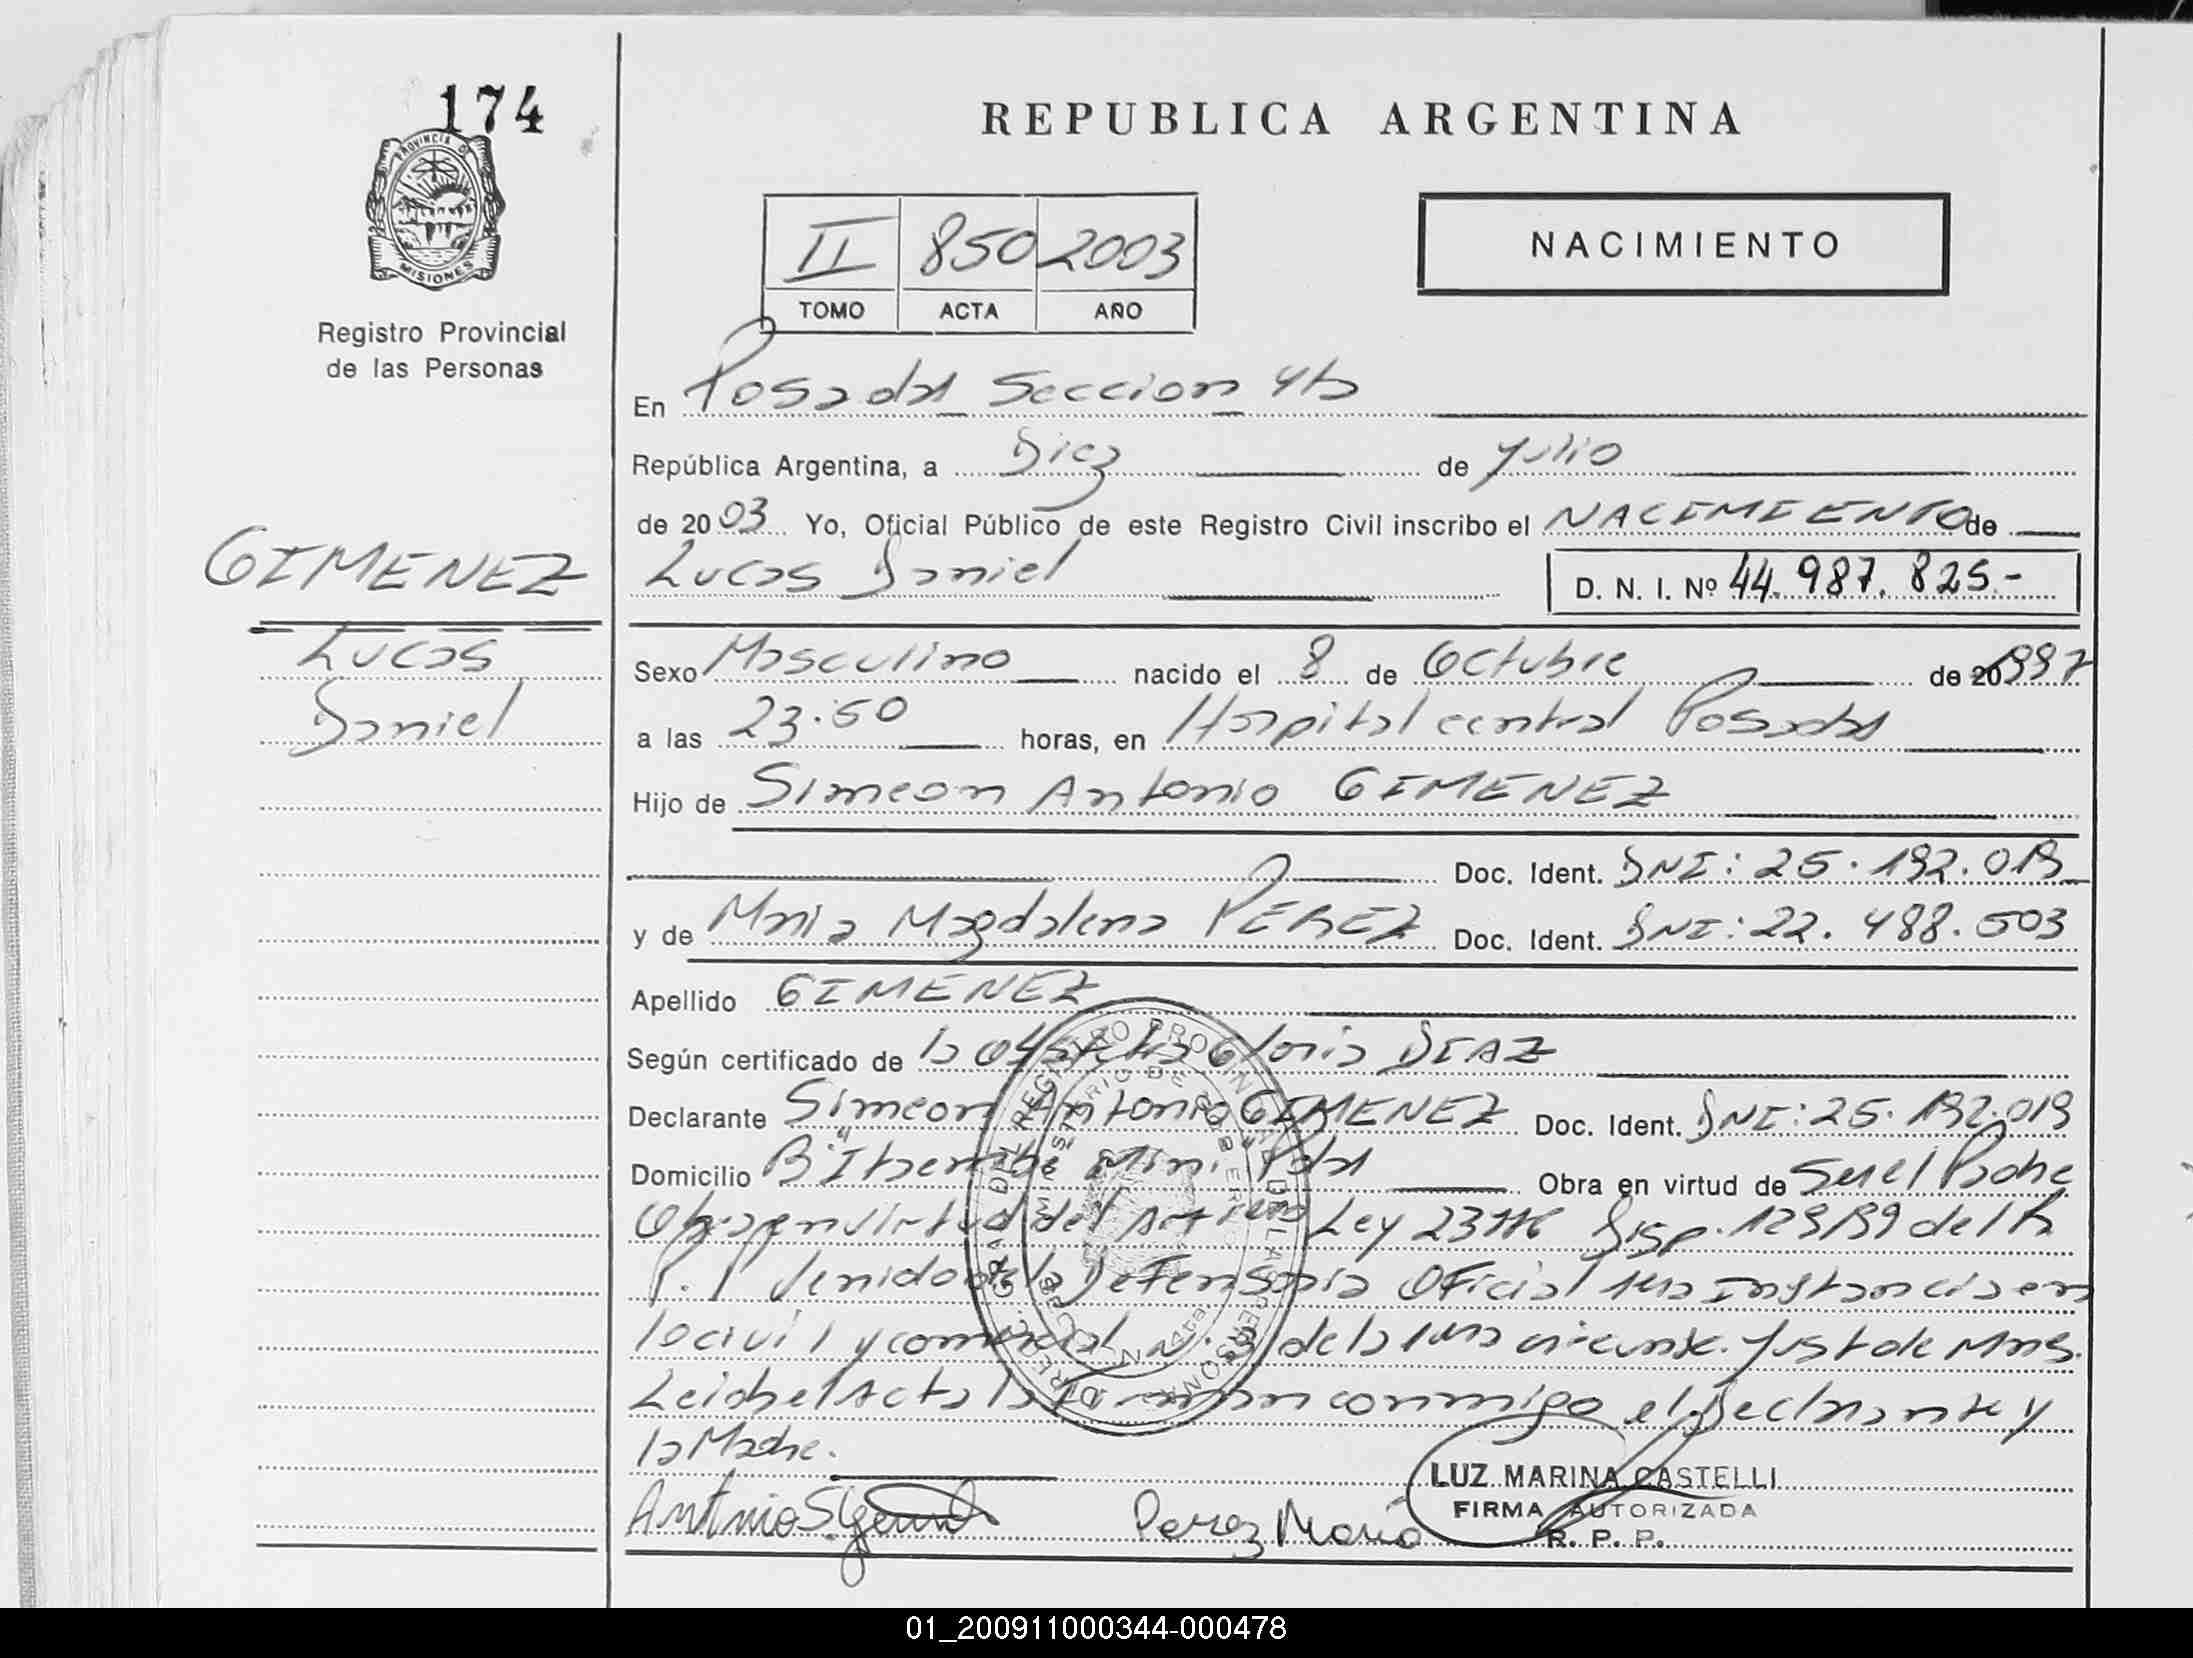 174
PROVINCIA DE
MISIONES
Registro Provincial
de las Personas
GIMENEZ
Lucas
Daniel
REPUBLICA ARGENTINA
II 850 2003
TOMO ACTA AÑO
NACIMIENTO
En Posadas Seccion 4ta
República Argentina, a Diez de Julio
de 2003 Yo, Oficial Público de este Registro Civil inscribo el NACIMIENTO de
Lucas Daniel D. N. I. Nº 44.987.825.-
Sexo Masculino nacido el 8 de Octubre de 20 1997
a las 23.50 horas, en Hospital central Posadas
Hijo de Simeon Antonio GIMENEZ
Doc. Ident. DNI: 25.192.019
y de Maria Magdalena PEREZ Doc. Ident. DNI: 22.488.503
Apellido GIMENEZ
Según certificado de la Obstetra Gloria DIAZ
Declarante Simeon Antonio GIMENEZ Doc. Ident. DNI: 25.192.019
Domicilio B° Itaembe Mini, Pdas Obra en virtud de Ser el Padre
Obra en virtud del Ley Disp. del R.
P. P Venido de la Defensoria Oficial 1era Instancia en
lo civil y comercial N. 3 de la 1era circunsc. Just de Mnes.
Leida el Acta la firman conmigo el Declarante y
la Madre.
Antonio S.
Perez Maria
LUZ MARINA CASTELLI
FIRMA AUTORIZADA
R. P. P.
01_200911000344-000478